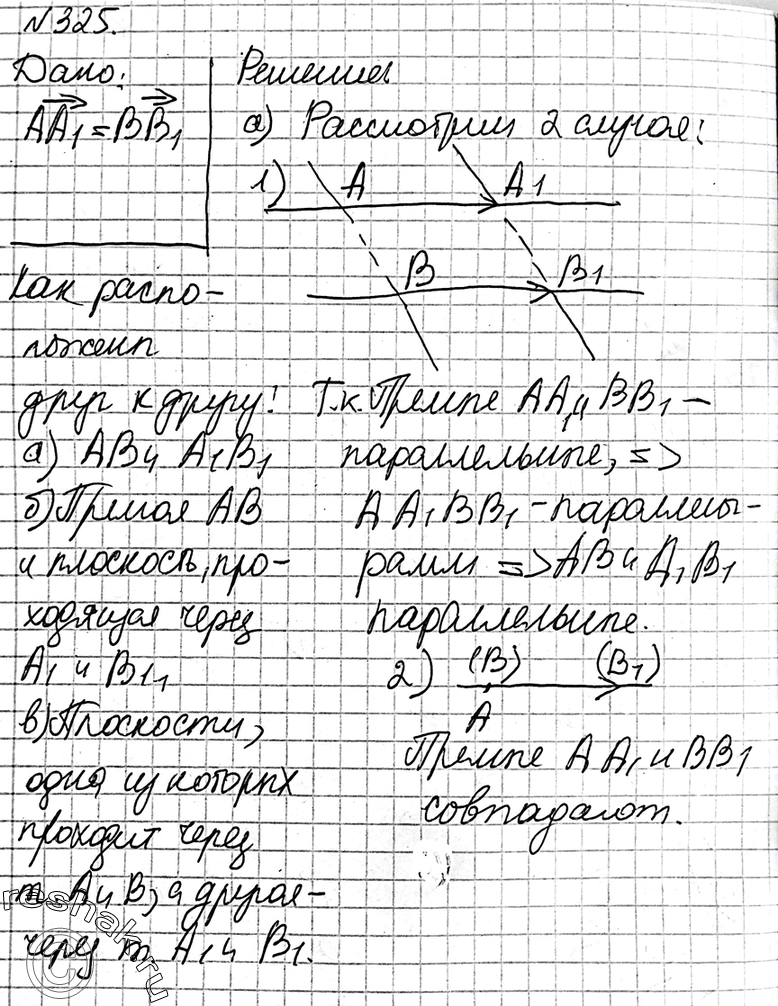 №325.
Дано:
AA₁ = BB₁
Как распо-
ложены
друг к другу!
а) AB и A₁B₁
б) Прямая AB
и плоскость, про-
ходящая через
A₁ и B₁,
в) Плоскости,
одна из которых
проходит через
т A и B, а другая -
через т A₁ и B₁.
Решение
а) Рассмотрим 2 случая:
1)
A A1
B B1
Т.к. Прямые AA₁ и BB₁ –
параллельные, =>
AA₁BB₁ - параллелы-
рамм => AB и A₁B₁
параллельные.
2) (B) (B₁)
A
Прямые AA₁ и BB1
совпадают.
reshak.ru
©